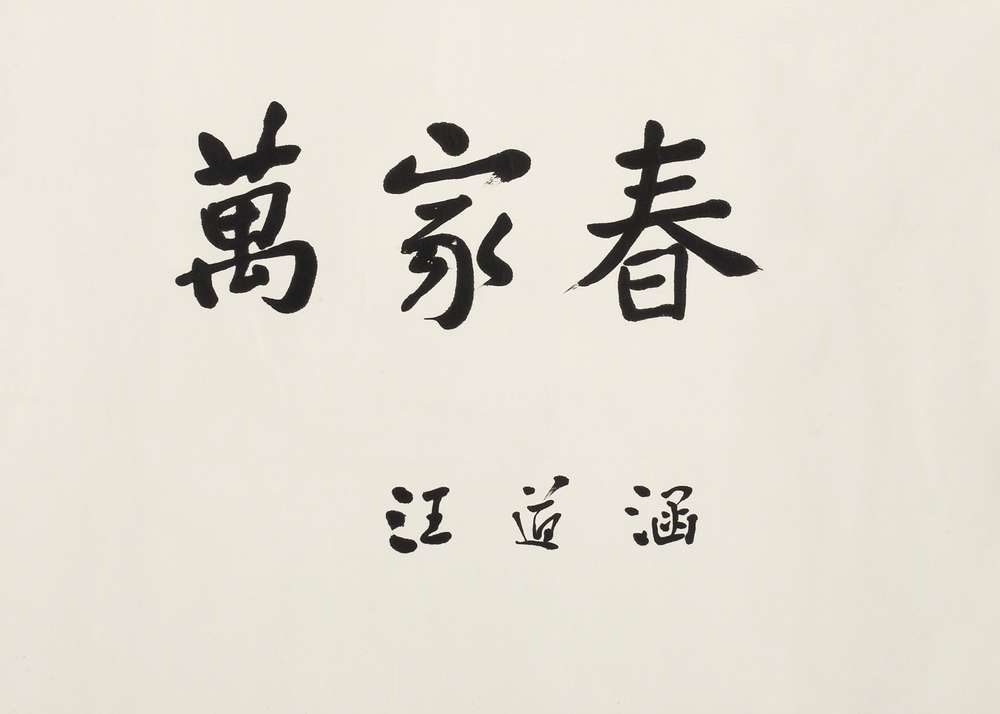 萬家春
汪道涵